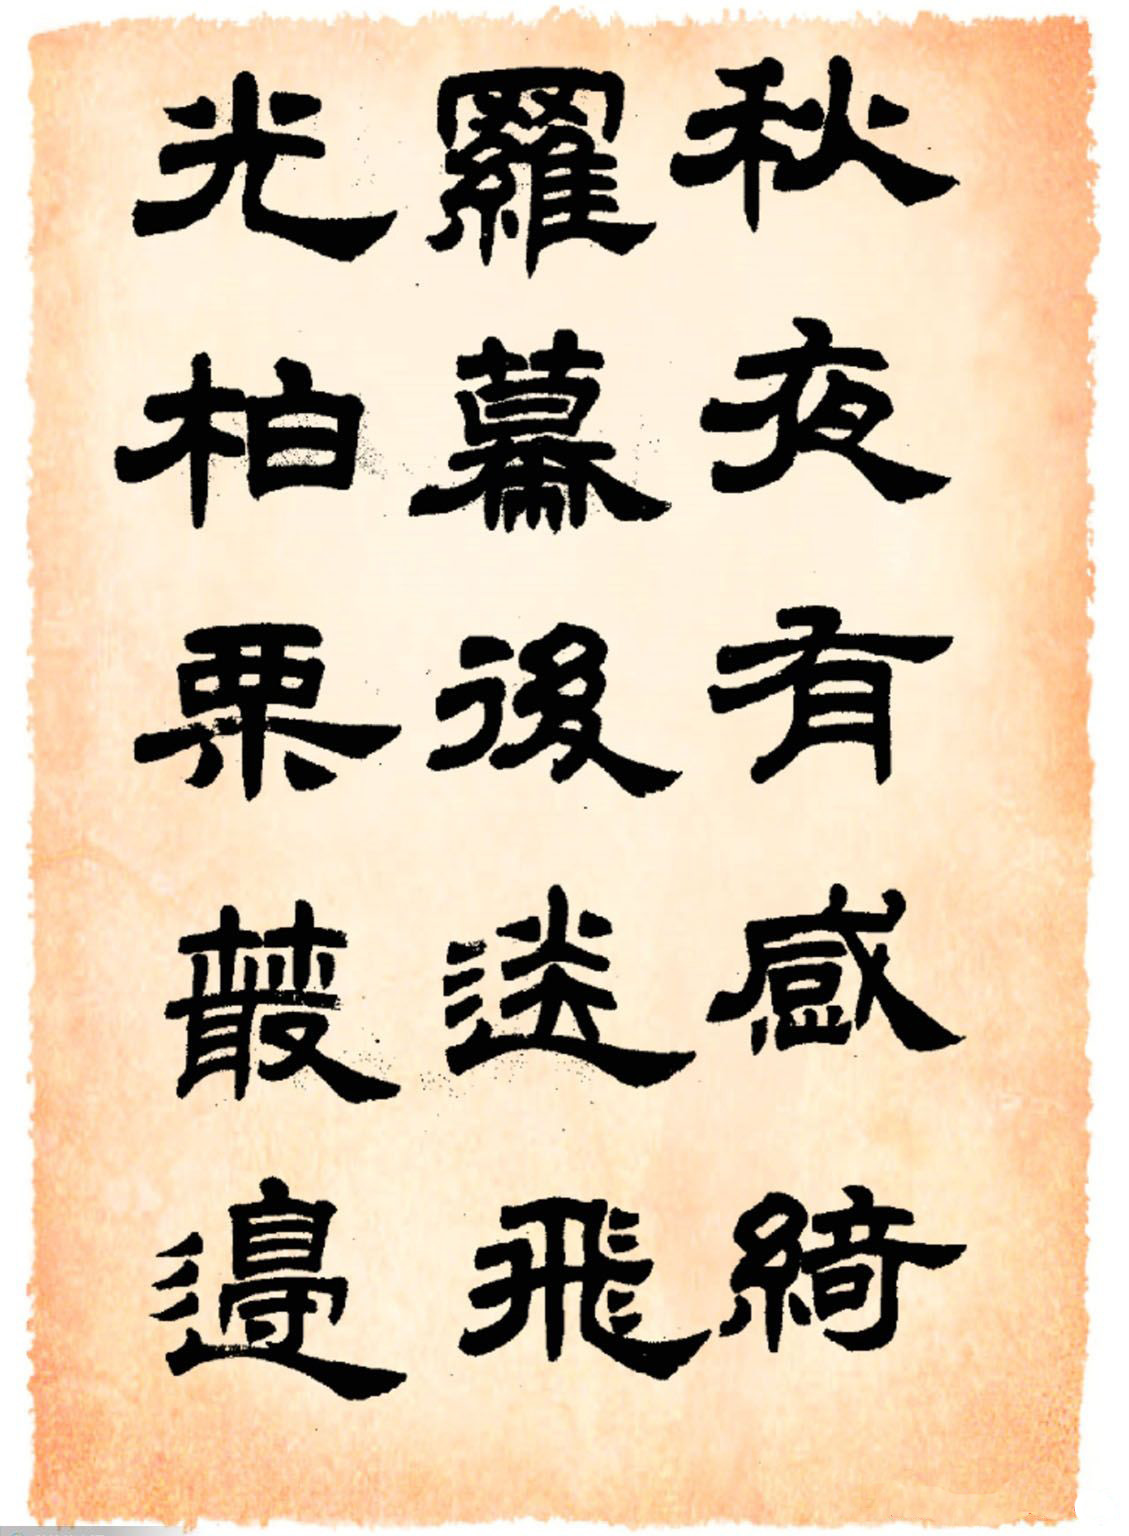 秋夜有感綺
羅幕後送飛
光柏栗叢邊